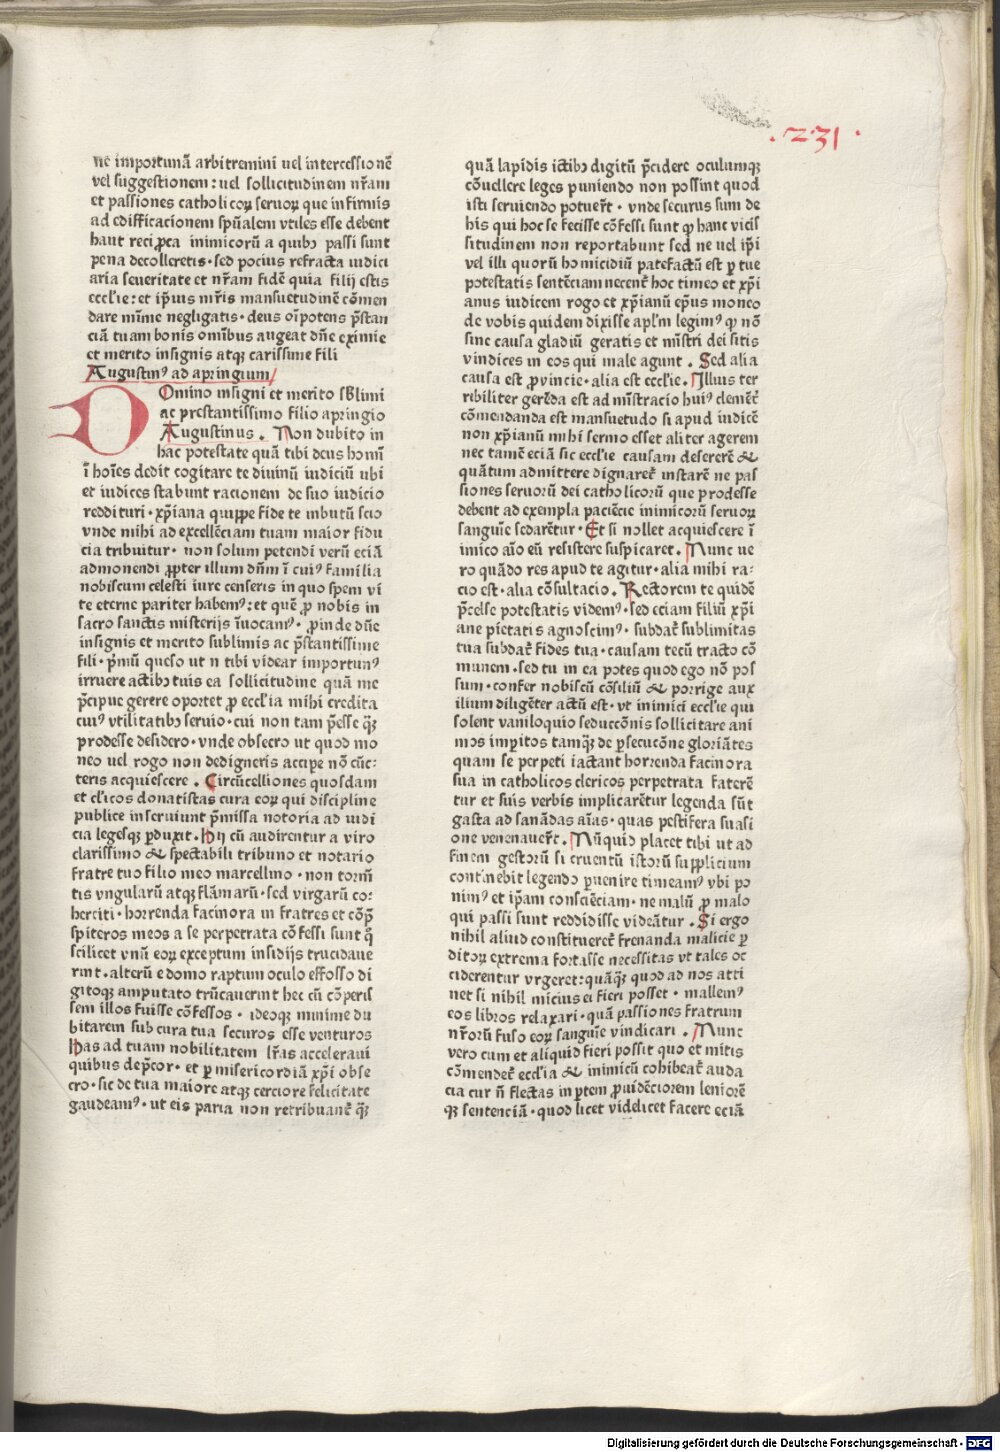 .231.
nē importunā arbitremini uel intercessionē
vel suggestionem: uel sollicitudinem nr̄am
et passiones catholicoꝝ seruoꝝ que infirmis
ad edifficacionem spūalem vtiles esse debent
haut reciꝓca inimicorū a quibꝫ passi sunt
pena decolleretis · sed pocius refracta iudici
aria seueritate et nr̄am fidē quia filij estis
eccl'ie: et ip̄ius mr̄is mansuetudinē cōmen
dare mīme negligatis · deus oīpotens p̄stan
ciā tuam bonis omībus augeat dn̄e eximie
et merito insignis atqꝫ carissime fili
Augustinꝰ ad apringium
DOmino insigni et merito sb̄limi
ac prestantissimo filio apringio
Augustinus . Non dubito in
hac potestate quā tibi deus homī
ī hoīes dedit cogitare te diuinū iudiciū ubi
et iudices stabunt racionem de suo iudicio
reddituri · xp̄iana quippe fide te imbutū scio
vnde mihi ad excellēciam tuam maior fidu
cia tribuitur · non solum petendi verū eciā
admonendi ꝓpter illum dn̄m ī cuiꝰ familia
nobiscum celesti iure censeris in quo spem vi
te eterne pariter habemꝰ: et quē ꝓ nobis in
sacro sanctis misterijs īuocamꝰ · ꝓinde dn̄e
insignis et merito sublimis ac p̄stantissime
fili · p̄mū queso ut n̄ tibi videar importunꝰ
irruere actibꝫ tuis ea sollicitudine quā me
p̄cipue gerere oportet ꝓ eccl'ia mihi credita
cuiꝰ vtilitatibꝫ seruio · cui non tam p̄esse qꝫ̄
prodesse desidero · vnde obsecro ut quod mo
neo uel rogo non dedigneris accipe nō cūc:
teris acquiescere . Circūcelliones quosdam
et cl'icos donatistas cura eoꝝ qui discipline
publice inseruiunt p̄missa notoria ad iudi
cia legesqꝫ ꝑduxit · Hij cū audirentur a viro
clarissimo & spectabili tribuno et notario
fratre tuo filio meo marcellino · non tormē
tis vngularū atqꝫ flāmarū · sed virgarū co:
herciti · horrenda facinora in fratres et cōp̄
spiteros meos a se perpetrata cōfessi sunt qͦ
scilicet vnū eoꝝ exceptum insidijs trucidaue
rint · alterū e domo raptum oculo effosso di
gitoqꝫ amputato trūcauerint hec cū cōperis
sem illos fuisse cōfessos · ideoqꝫ minime du
bitarem sub cura tua securos esse venturos
Has ad tuam nobilitatem lr̄as acceleraui
quibus dep̄cor · et ꝑ misericordiā xp̄i obse
cro · sic de tua maiore atqꝫ cerciore felicitate
gaudeamꝰ · ut eis paria non retribuant᷑ qꝫ̄
quā lapidis ictibꝫ digitū p̄cidere oculumqꝫ
cōuellere leges puniendo non possint quod
isti seruiendo potuer̄t · vnde securus sum de
his qui hoc se fecisse cōfessi sunt ꝙ hanc vicis
situdinem non reportabunt sed ne uel ip̄i
vel illi quorū homicidiū patefactū est ꝑ tue
potestatis sentēciam necent᷑ hoc timeo et xp̄i
anus iudicem rogo et xp̄ianū ep̄us moneo
de vobis quidem dixisse apl'm legimꝰ ꝙ nō
sine causa gladiū geratis et mīstri dei sitis
vindices in eos qui male agunt . Sed alia
causa est ꝓvincie · alia est eccl'ie . Illius ter
ribiliter gerēda est ad mīstracio huiꝰ clemēt᷑
cōmendanda est mansuetudo si apud iudicē
non xp̄ianū mihi sermo esset aliter agerem
nec tamē eciā sic eccl'ie causam desererē &
quātum admittere dignaret᷑ instarē ne pas
siones seruorū dei catholicorū que prodesse
debent ad exempla paciēcie inimicorū seruoꝝ
sanguīe fedarētur · Et si nollet acquiescere ī
imico aīo eū resistere suspicaret᷑ . Nunc ue
ro quādo res apud te agitur · alia mihi ra:
cio est · alia cōsultacio . Rectorem te quidē
p̄celse potestatis videmꝰ · sed eciam filiū xp̄i
ane pietatis agnoscimꝰ · subdat᷑ sublimitas
tua subdat᷑ fides tua · causam tecū tracto cō
munem · sed tu in ea potes quod ego nō pos
sum · confer nobiscū cōsiliū & porrige aux
ilium diligēter actū est · vt inimici eccl'ie qui
solent vaniloquio seduccōnis sollicitare ani
mos imp̄itos tamqꝫ̄ de ꝑsecucōne gloriātes
quam se perpeti iactant horrenda facinora
sua in catholicos clericos perpetrata faterē
tur et suis verbis implicarētur legenda sūt
gasta ad sanādas aīas · quas pestifera suasi
one venenauer̄t . Nūquid placet tibi ut ad
finem gestorū si cruentū istorū supplicium
continebit legendo ꝑuenire timeamꝰ vbi po
nimꝰ et ip̄am consciēciam · ne malū ꝓ malo
qui passi sunt reddidisse videātur . Si ergo
nihil aliud constitueret᷑ frenanda malicie ꝑ
ditoꝝ extrema fortasse necessitas vt tales oc
ciderentur vrgeret: quāqꝫ̄ quod ad nos atti
net si nihil micius ei fieri posset · mallemꝰ
eos libros relaxari · quā passiones fratrum
nr̄orū fuso eoꝝ sanguīe vindicari . Nunc
vero cum et aliquid fieri possit quo et mitis
cōmendet᷑ eccl'ia & inimicū cohibeat᷑ auda
cia cur n̄ flectas in ꝑtem ꝓuidēciorem leniorē
qꝫ sentenciā · quod licet videlicet facere eciā
Digitalisierung gefördert durch die Deutsche Forschungsgemeinschaft - DFG